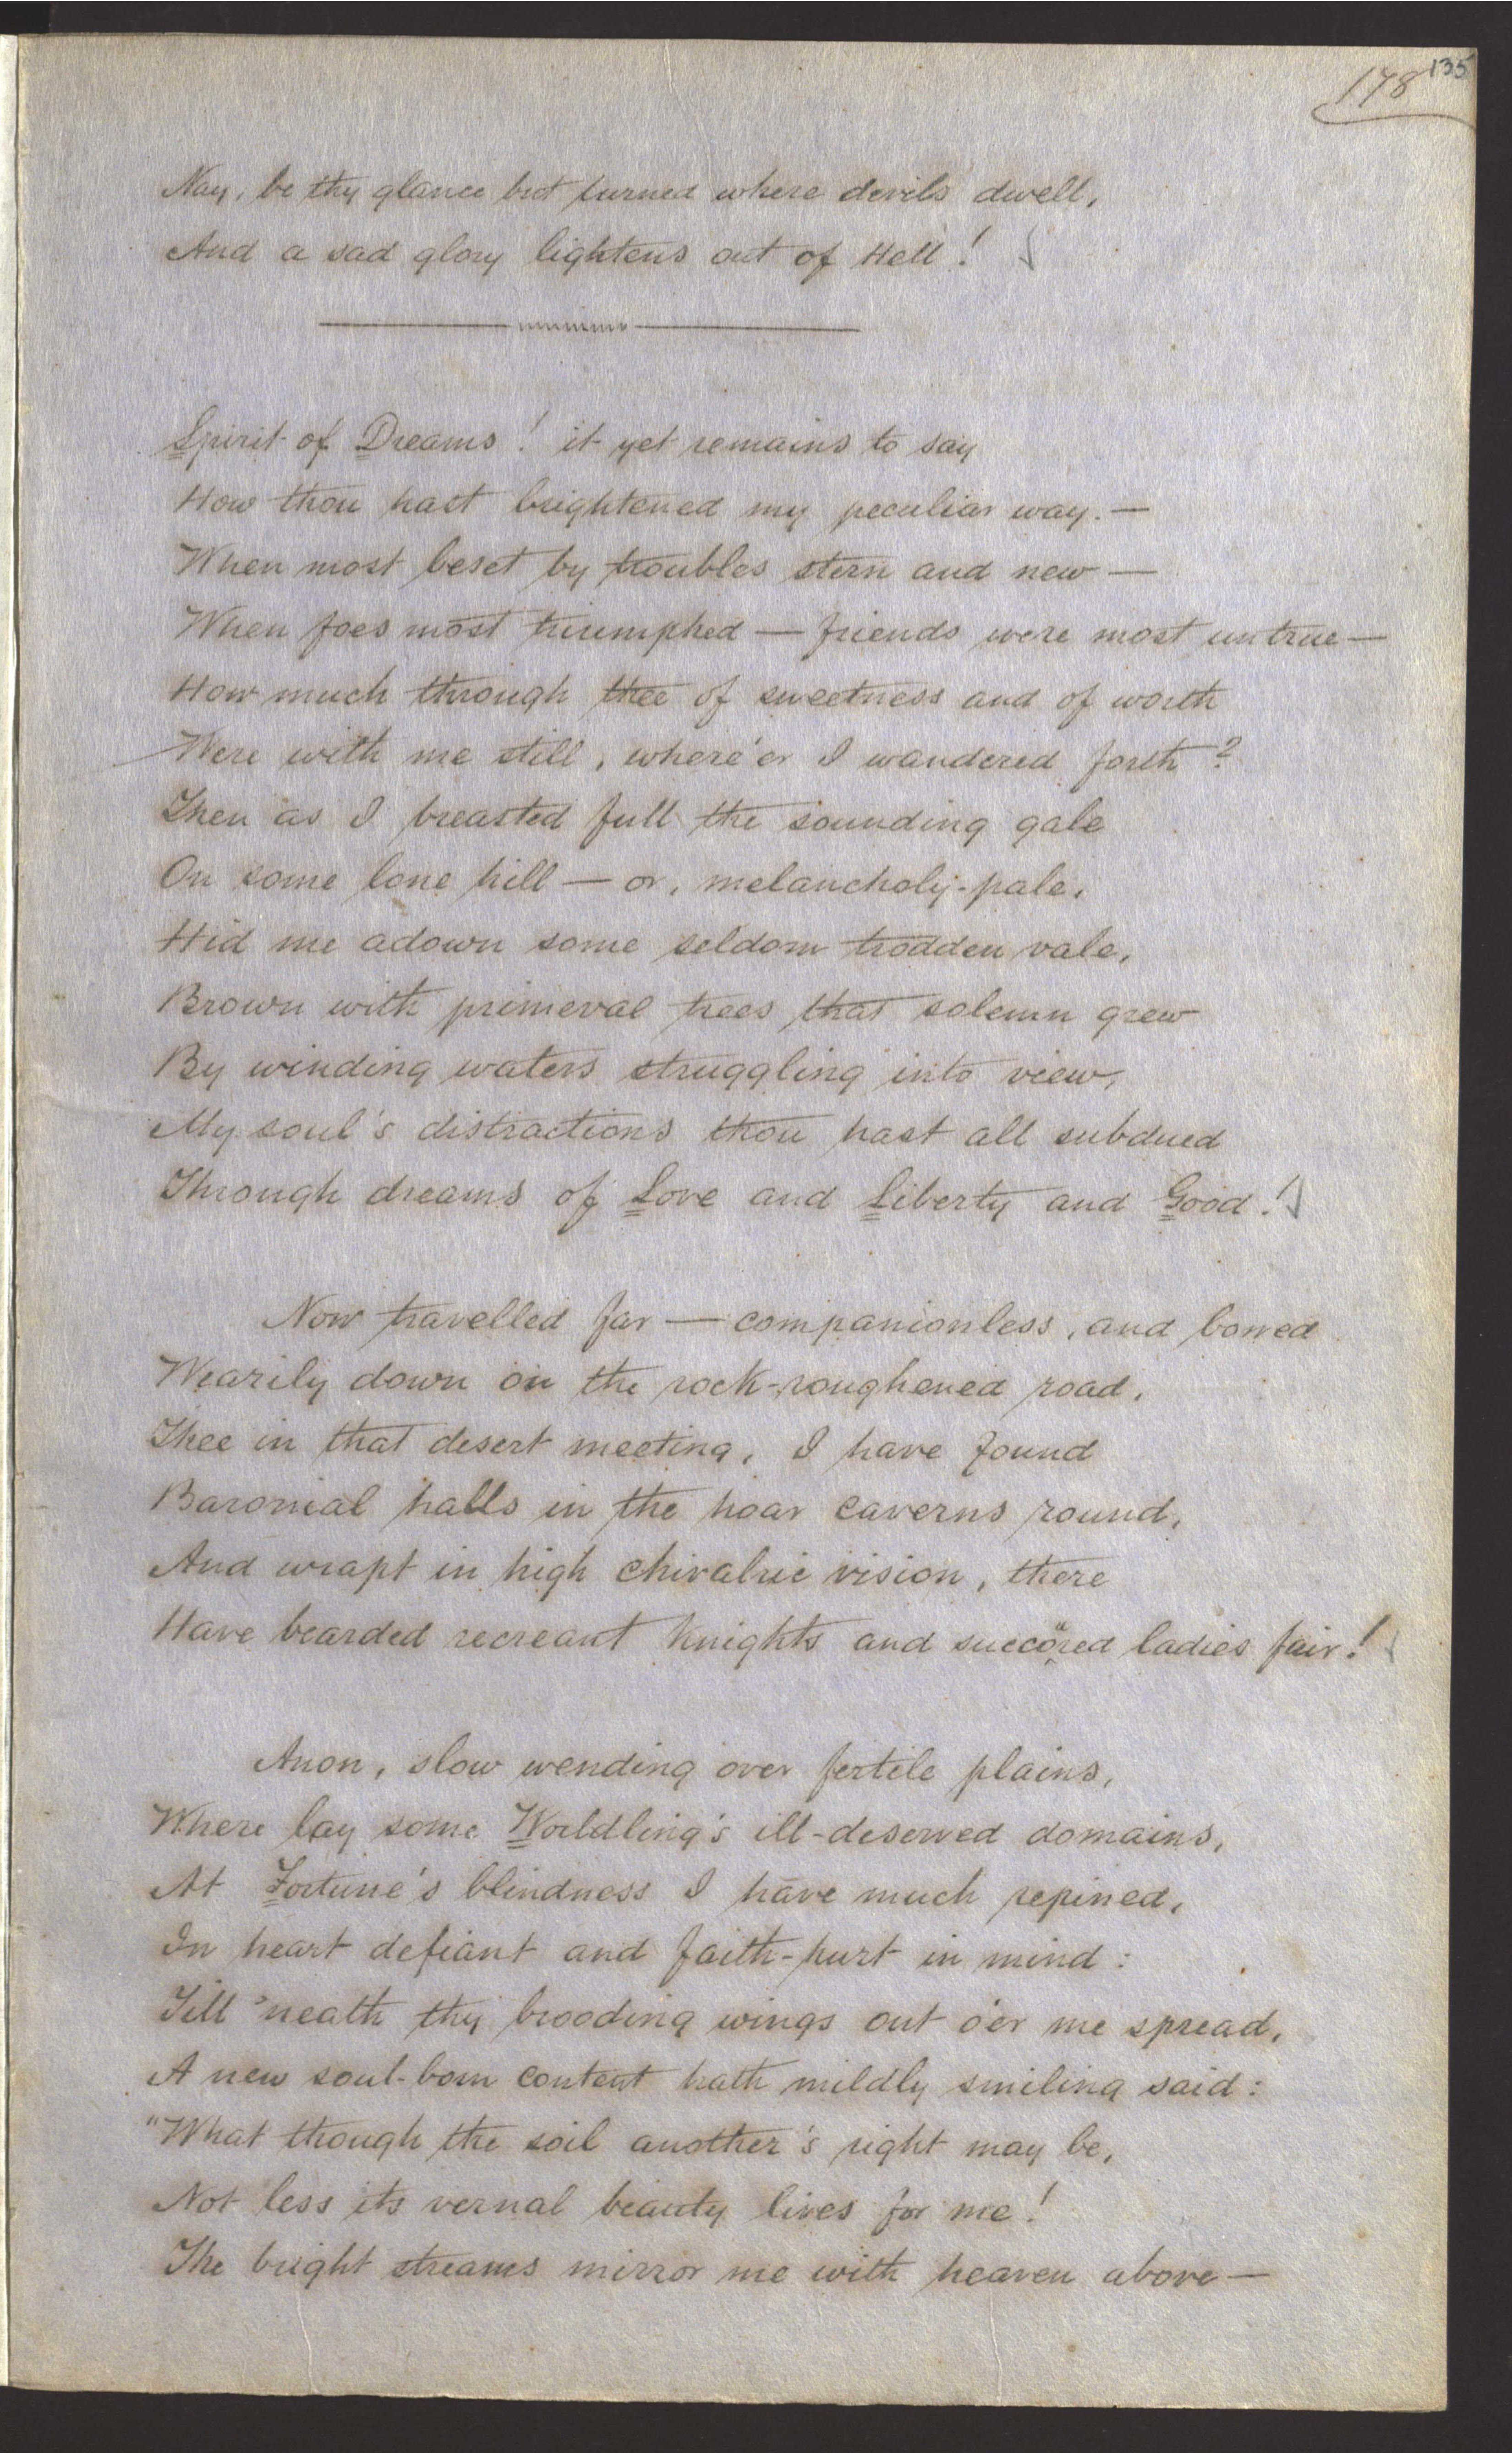 135
178
Nay, be thy glance but turned where devils dwell,
And a sad glory lightens out of Hell!
Spirit of Dreams! it yet remains to say
How thou hast brightened my peculiar way. —
When most beset by troubles stern and new —
When foes most triumphed — friends were most untrue —
How much through thee of sweetness and of worth
Were with me still, where'er I wandered forth?
Then as I breasted full the sounding gale
On some lone hill — or, melancholy-pale,
Hid me adown some seldom trodden vale,
Brown with primeval trees that solemn grew
By winding waters struggling into view,
My soul's distractions thou hast all subdued
Through dreams of Love and Liberty and Good!
Now travelled far — companionless, and bowed
Wearily down on the rock-roughened road,
Thee in that desert meeting, I have found
Baronial halls in the hoar caverns round,
And wrapt in high chivalric vision, there
Have bearded recreant knights and succored ladies fair!
Anon, slow wending over fertile plains,
Where lay some Worldling's ill-deserved domains,
At Fortune's blindness I have much repined,
In heart defiant and faith-hurt in mind:
Till 'neath thy brooding wings out o'er me spread,
A new soul-born content hath mildly smiling said:
"What though the soil another's right may be,
Not less its vernal beauty lives for me!
The bright streams mirror me with heaven above —